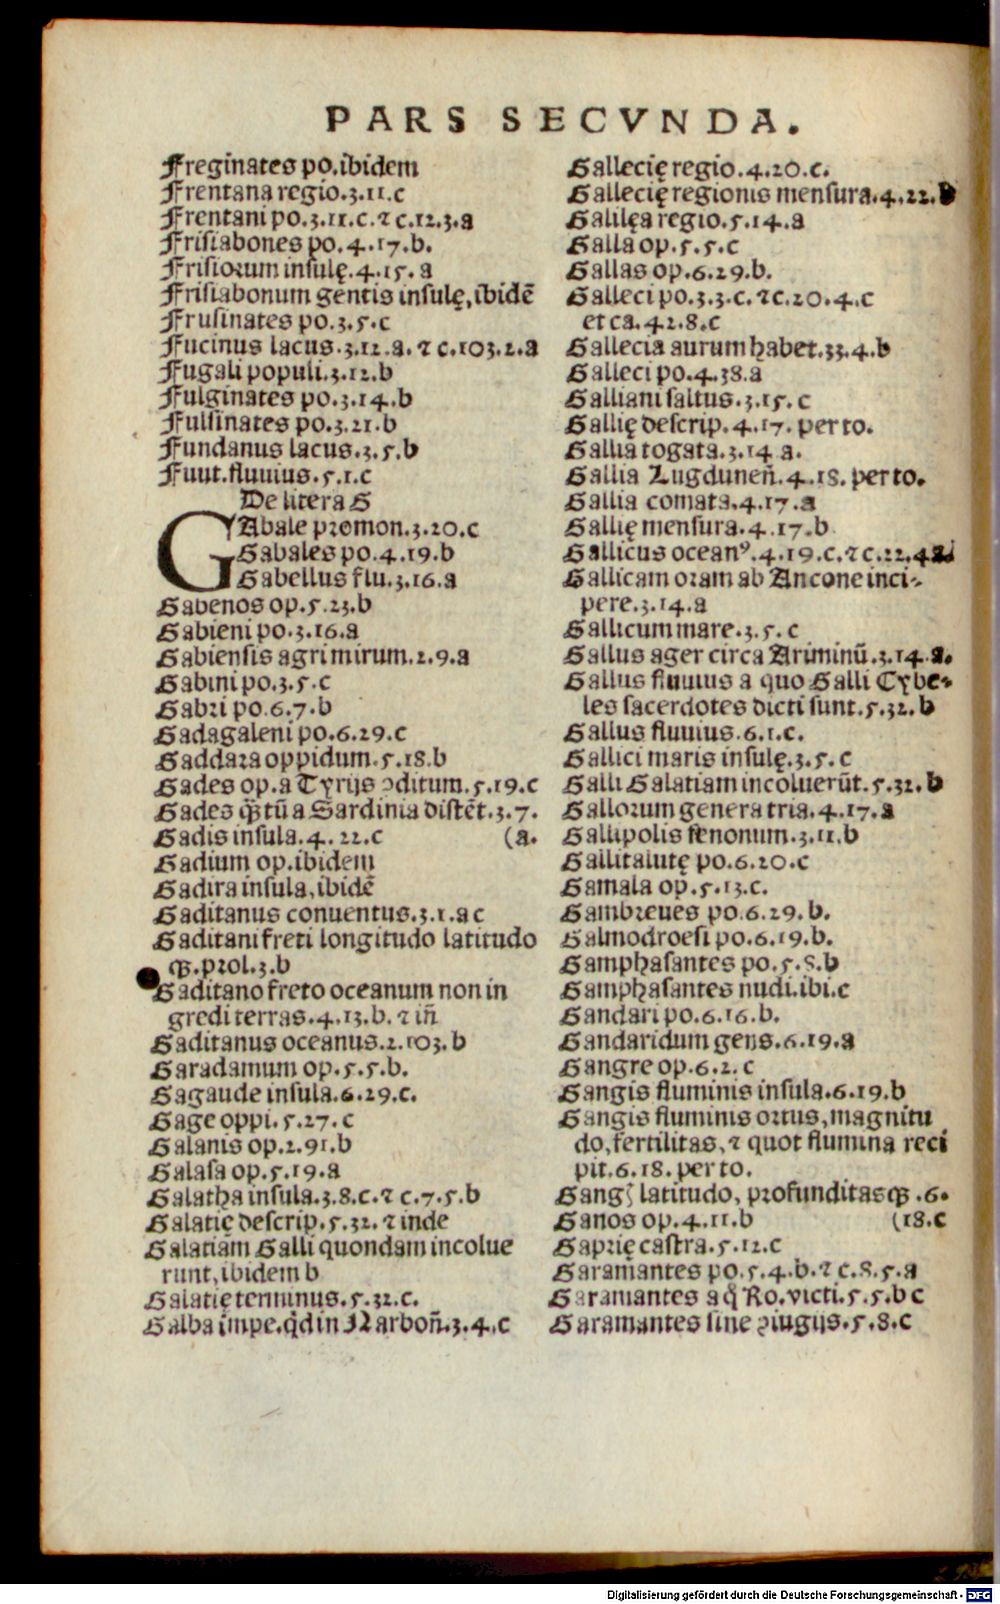 PARS SECVNDA.
Freginates po.ibidem
Frentana regio.3.11.c
Frentani po.3.11.c.⁊ c.12.3.a
Frisiabones po.4.17.b.
Frisiorum insulę.4.15.a
Frisiabonum gentis insulę,ibidē
Frusinates po.3.5.c
Fucinus lacus.3.12.a.⁊ c.103.2.a
Fugali populi.3.12.b
Fulginates po.3.14.b
Fulsinates po.3.21.b
Fundanus lacus.3.5.b
Fuut.fluuius.5.1.c
De litera G
GAbale promon.3.20.c
Gabales po.4.19.b
Gabellus flu.3.16.a
Gabenos op.5.23.b
Gabieni po.3.16.a
Gabiensis agri mirum.2.9.a
Gabini po.3.5.c
Gabri po.6.7.b
Gadagaleni po.6.29.c
Gaddara oppidum.5.18.b
Gades op.a Tyrijs ↄditum.5.19.c
Gades q̃tū a Sardinia distēt.3.7.
Gadis insula.4.22.c (a.
Gadium op.ibidem
Gadira insula,ibidē
Gaditanus conuentus.3.1.a c
Gaditani freti longitudo latitudo
qꝫ.prol.3.b
Gaditano freto oceanum non in
gredi terras.4.13.b.⁊ iñ
Gaditanus oceanus.2.103.b
Garadamum op.5.5.b.
Gagaude insula.6.29.c.
Gage oppi.5.27.c
Galanis op.2.91.b
Galasa op.5.19.a
Galatha insula.3.8.c.⁊ c.7.5.b
Galatię descrip.5.32.⁊ inde
Galatiam Galli quondam incolue
runt,ibidem b
Galatię terminus.5.32.c.
Galba impe.qđ in Narboñ.3.4.c
Gallecię regio.4.20.c.
Gallecię regionis mensura.4.22.b
Galilęa regio.5.14.a
Galla op.5.5.c
Gallas op.6.29.b.
Galleci po.3.3.c.⁊ c.20.4.c
et ca.42.8.c
Gallecia aurum habet.33.4.b
Galleci po.4.38.a
Galliani saltus.3.15.c
Gallię descrip.4.17.per to.
Gallia togata.3.14 a.
Gallia Lugduneñ.4.18.per to.
Gallia comata.4.17.a
Gallię mensura.4.17.b
Gallicus oceanꝰ.4.19.c.⁊ c.22.4
Gallicam oram ab Ancone inci-
pere.3.14.a
Gallicum mare.3.5.c
Gallus ager circa Ariminū.3.14.a.
Gallus fluuius a quo Galli Cybe-
les sacerdotes dicti sunt.5.32.b
Gallus fluuius.6.1.c.
Gallici maris insulę.3.5.c
Galli Galatiam incoluerūt.5.32.b
Gallorum genera tria.4.17.a
Gallipolis senonum.3.11.b
Gallitalutę po.6.20.c
Gamala op.5.13.c.
Gambreues po.6.29.b.
Galmodroesi po.6.19.b.
Gamphasantes po.5.8.b
Gamphasantes nudi.ibi.c
Gandari po.6.16.b.
Gandaridum gens.6.19.a
Gangre op.6.2.c
Gangis fluminis insula.6.19.b
Gangis fluminis ortus,magnitu
do,fertilitas,⁊ quot flumina reci
pit.6.18.per to.
Gangꝭ latitudo, profunditasqꝫ.6.
Ganos op.4.11.b (18.c
Gaprię castra.5.12.c
Garamantes po.5.4.b.⁊ c.8.5.a
Garamantes a q̃ Ro.victi.5.5.b c
Garamantes sine ↄiugijs.5.8.c
Digitalisierung gefördert durch die Deutsche Forschungsgemeinschaft - DFG